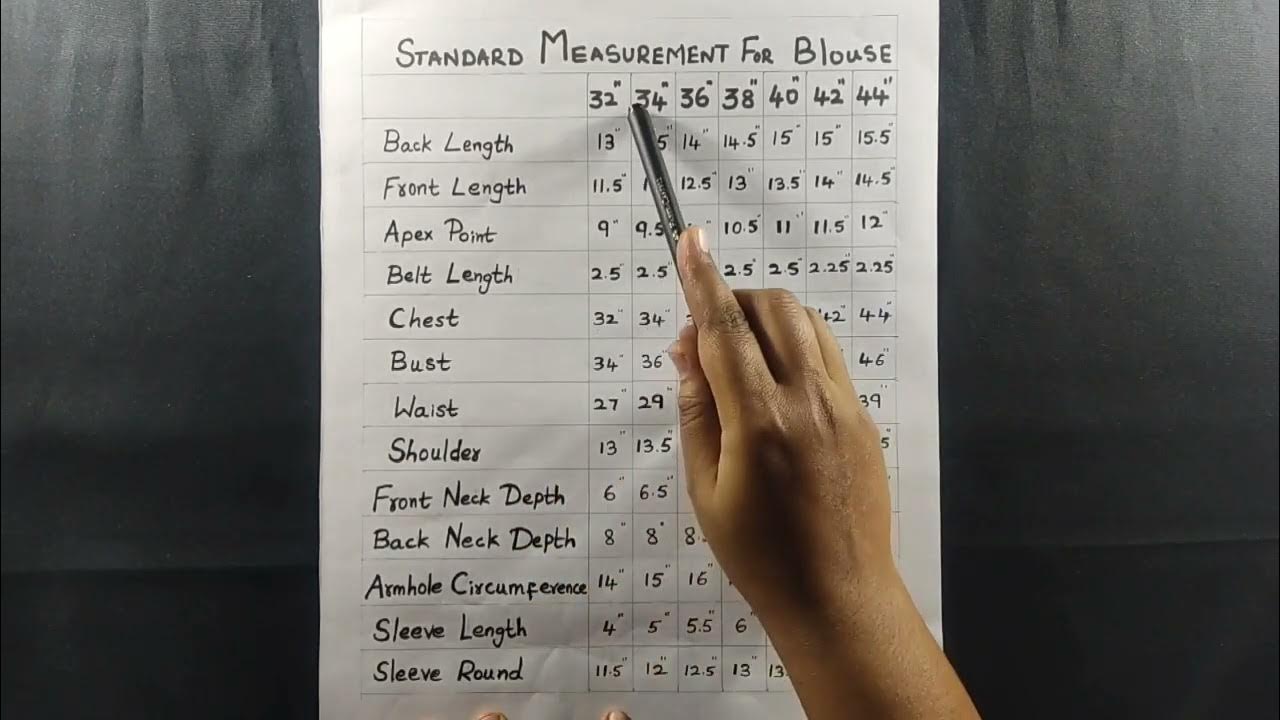 STANDARD MEASUREMENT FOR BLOUSE
32" 34" 36" 38" 40" 42" 44"
Back Length 13" 14" 14.5" 15" 15" 15.5"
Front Length 11.5" 12.5" 13" 13.5" 14" 14.5"
Apex Point 9" 9.5 10.5" 11" 11.5" 12"
Belt Length 2.5" 2.5" 2.5" 2.5" 2.25" 2.25"
Chest 32" 34" 44"
Bust 34" 36" 46"
Waist 27" 29" 39"
Shoulder 13" 13.5"
Front Neck Depth 6" 6.5"
Back Neck Depth 8" 8"
Armhole Circumference 14" 15" 16"
Sleeve Length 4" 5" 5.5" 6"
Sleeve Round 11.5" 12" 12.5" 13"